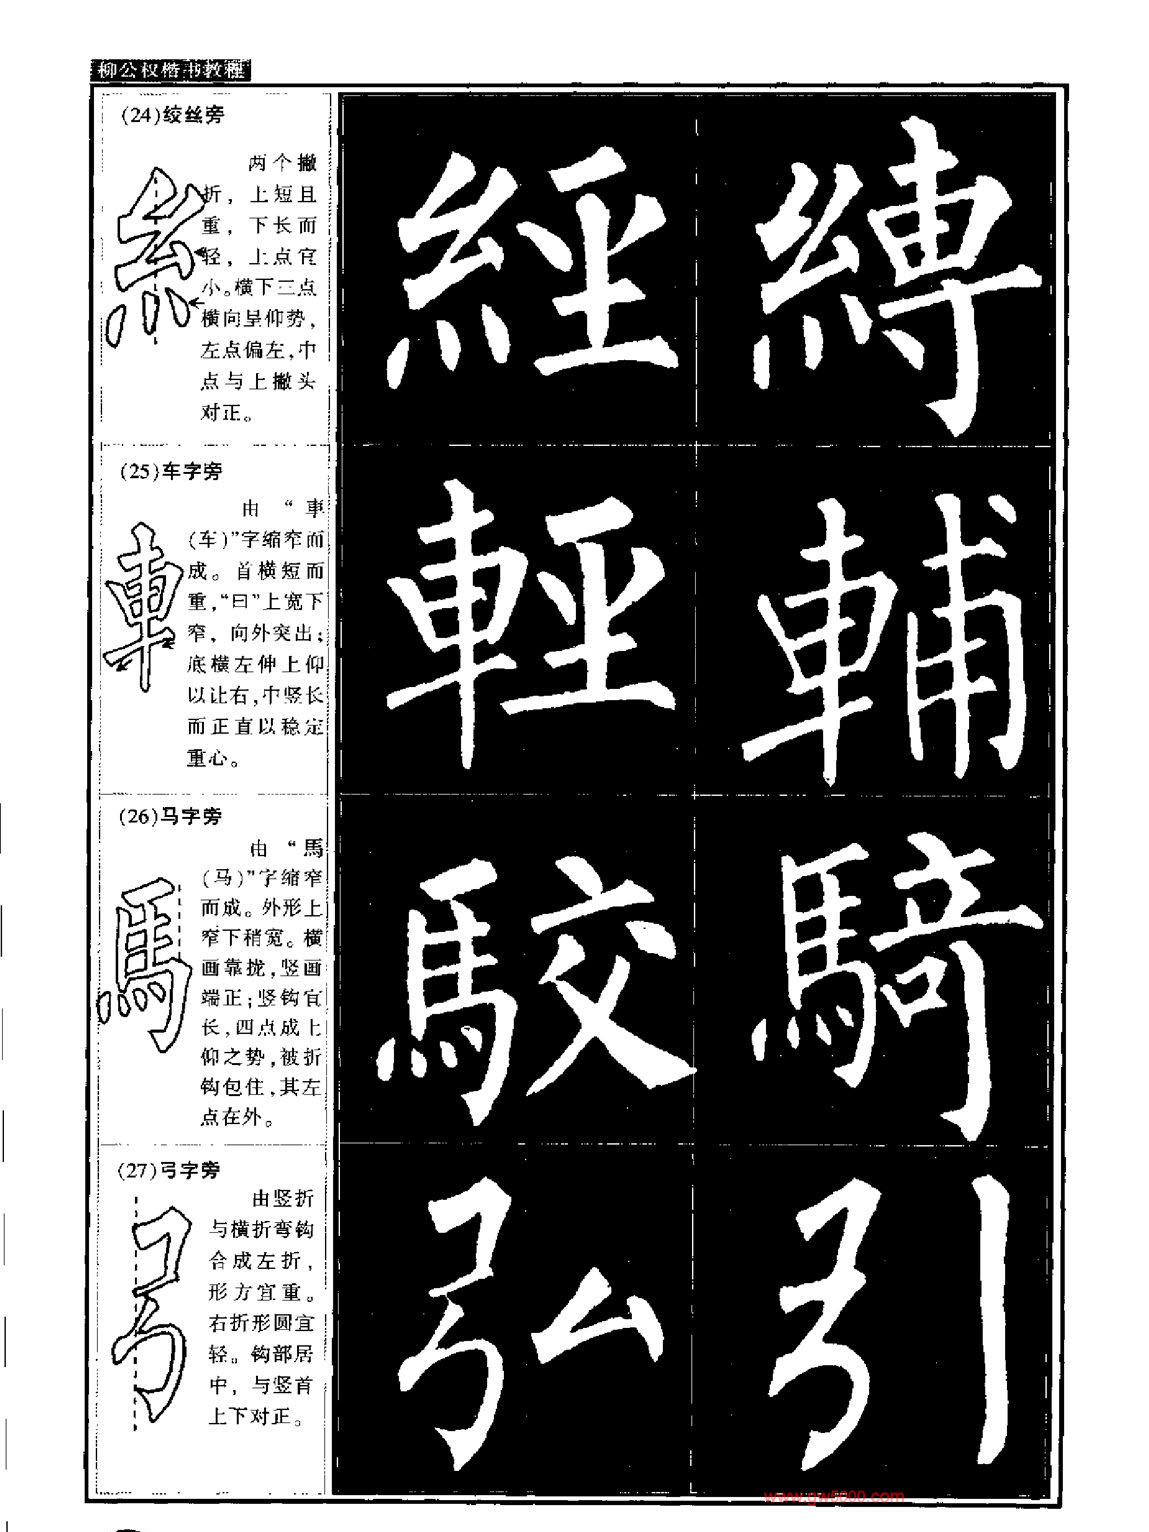 柳公权楷书教程
(24)绞丝旁
两个撇
折，上短且
重，下长而
轻，上点宜
小。横下三点
横向呈仰势，
左点偏左，中
点与上撇头
对正。
經 縛
(25)车字旁
由“車
(车)”字缩窄而
成。首横短而
重，“曰”上宽下
窄，向外突出；
底横左伸上仰
以让右，中竖长
而正直以稳定
重心。
輕 輔
(26)马字旁
由“馬
(马)”字缩窄
而成。外形上
窄下稍宽。横
画靠拢，竖画
端正；竖钩宜
长，四点成上
仰之势，被折
钩包住，其左
点在外。
駮 騎
(27)弓字旁
由竖折
与横折弯钩
合成左折，
形方宜重。
右折形圆宜
轻。钩部居
中，与竖首
上下对正。
弘 引
www.gw5600.com